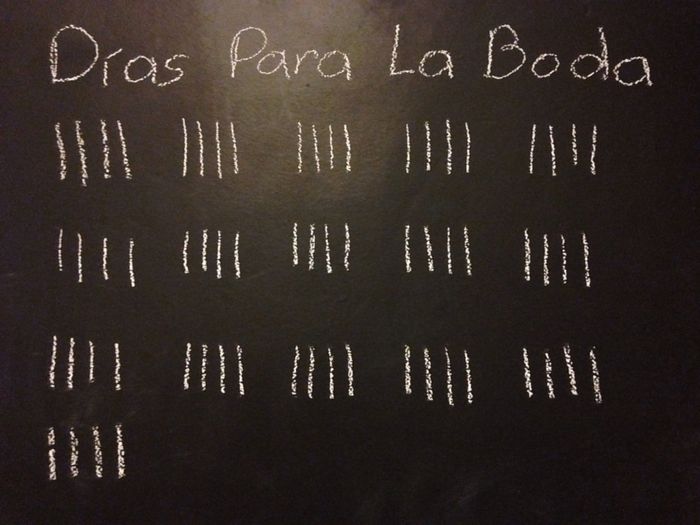 Días Para La Boda